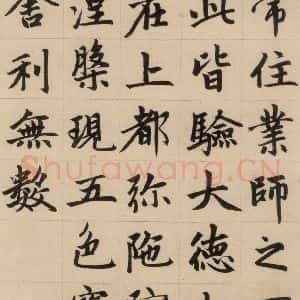 常住業師之
此皆驗大德
在上都弥陁院
涅槃現五色寶
舍利無數
Shufawang.CN